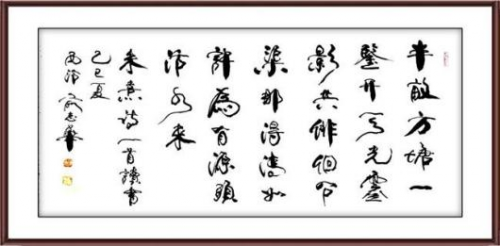 半畝方塘一
鑒开天光雲
影共徘徊问
渠那得清如
許為有源頭
活水来
朱熹詩一首讀書
己巳夏
志華